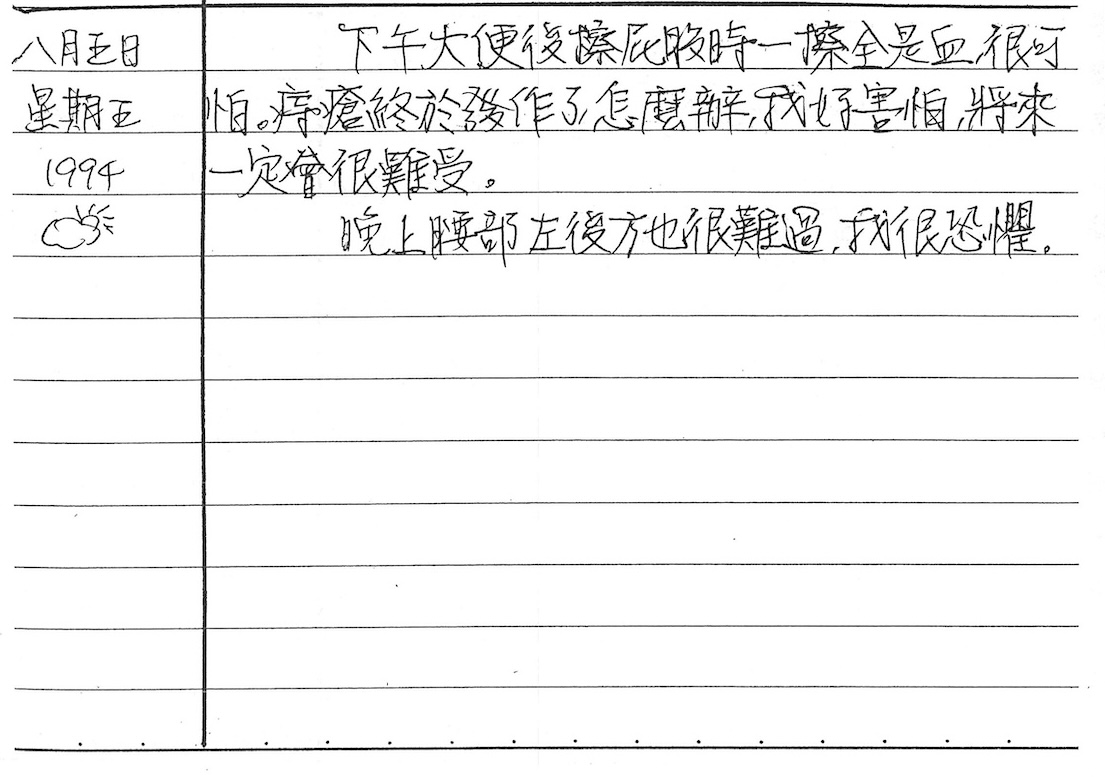 八月五日
星期五
1994
下午大便後擦屁股時一擦全是血,很可
怕。痔瘡終於發作了,怎麼辦,我好害怕,將來
一定會很難受。
晚上腰部左後方也很難過,我很恐懼。